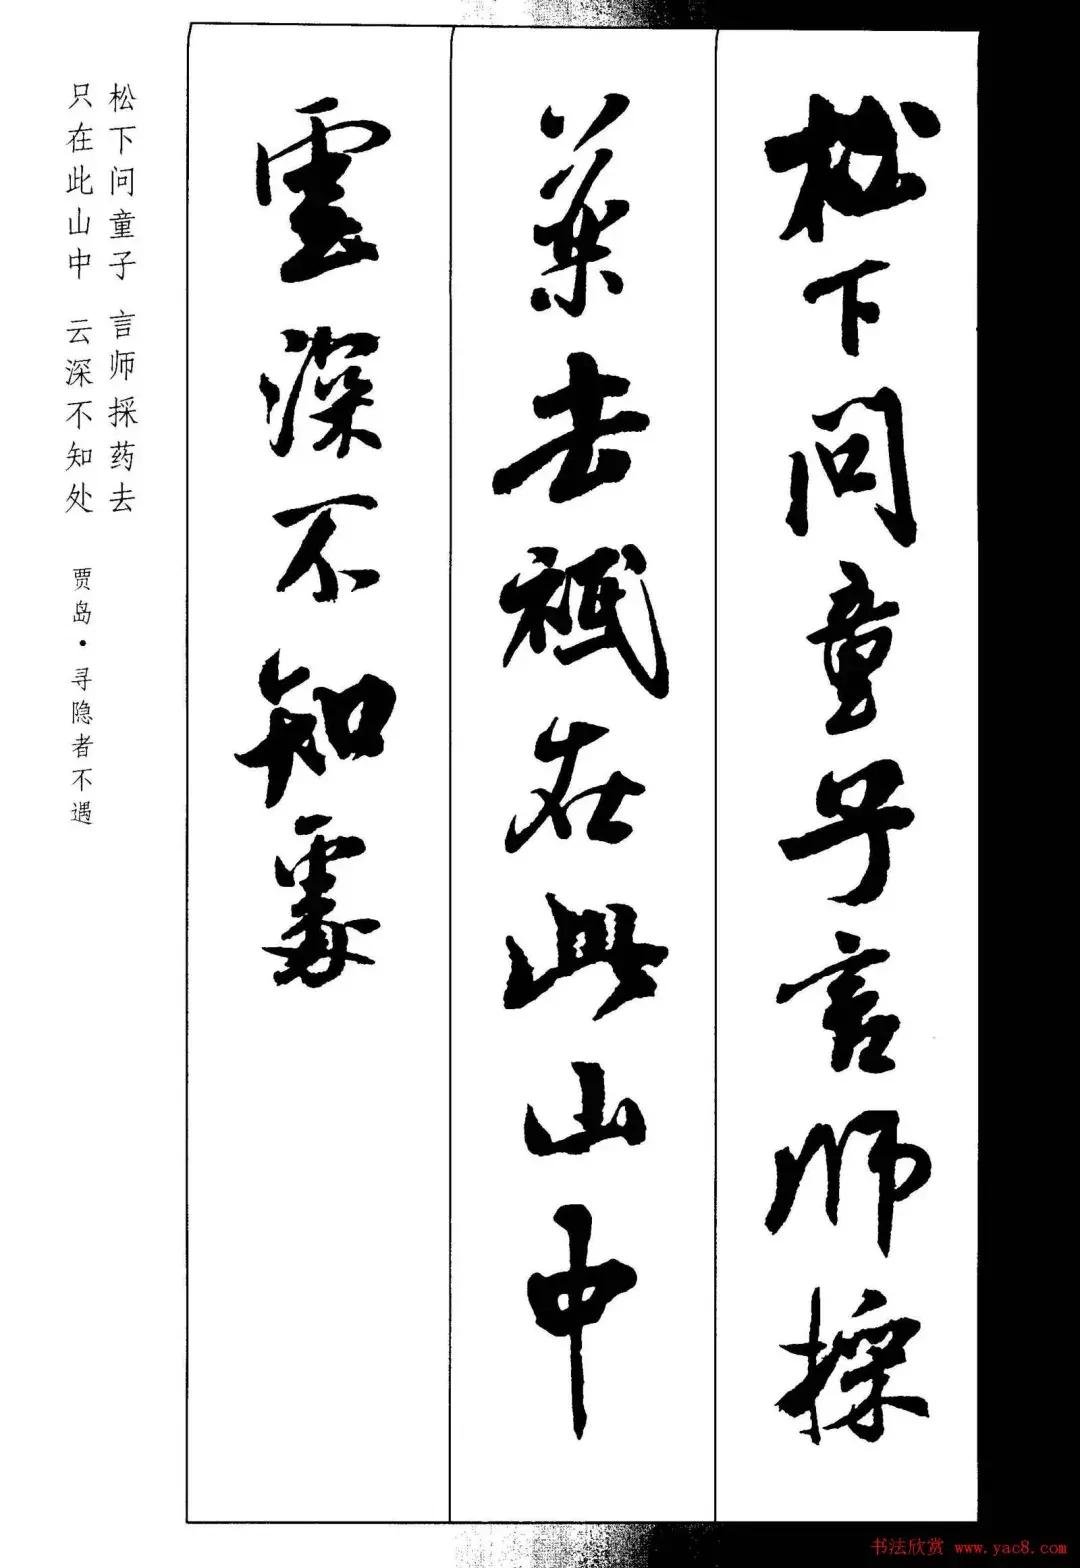 松下问童子言师採
药去祇在此山中
雲深不知處
松下问童子 言师採药去
只在此山中 云深不知处
贾岛·寻隐者不遇
书法欣赏 www.yac8.com